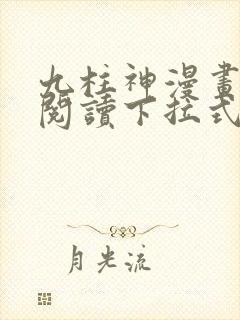 九柱神漫畫
閱讀下拉式
月光流